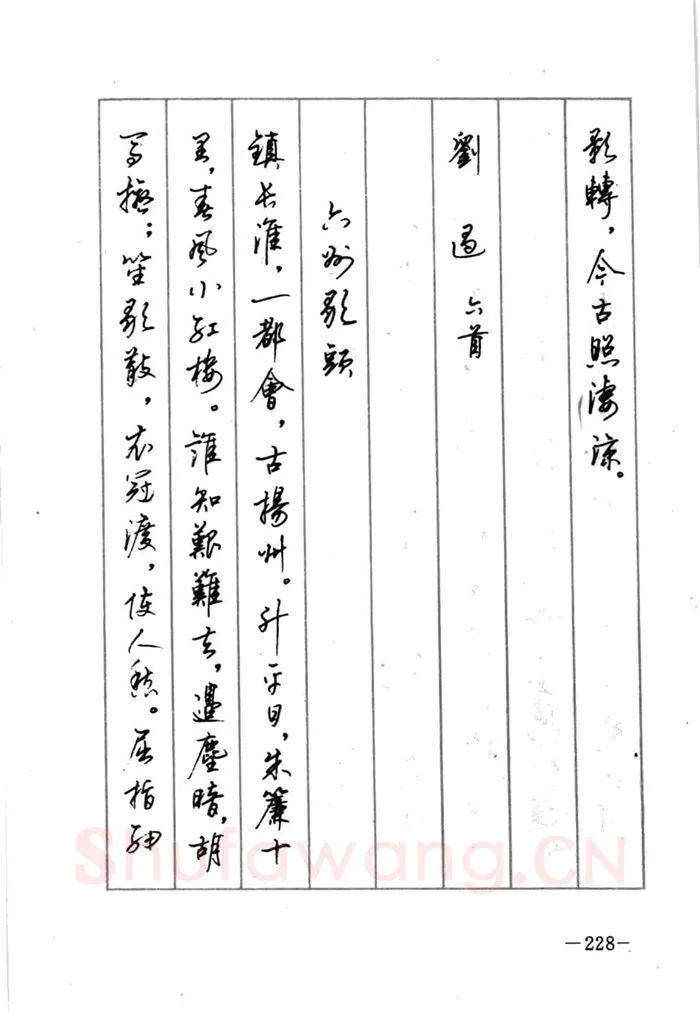 影轉，今古照淒涼。
劉 過 六首
六州歌頭
鎮長淮，一都會，古揚州。升平日，朱簾十
里，春風小紅樓。誰知艱難去，邊塵暗，胡
馬擾；笙歌散，衣冠渡，使人愁。屈指細
Shufawang.CN
—228—